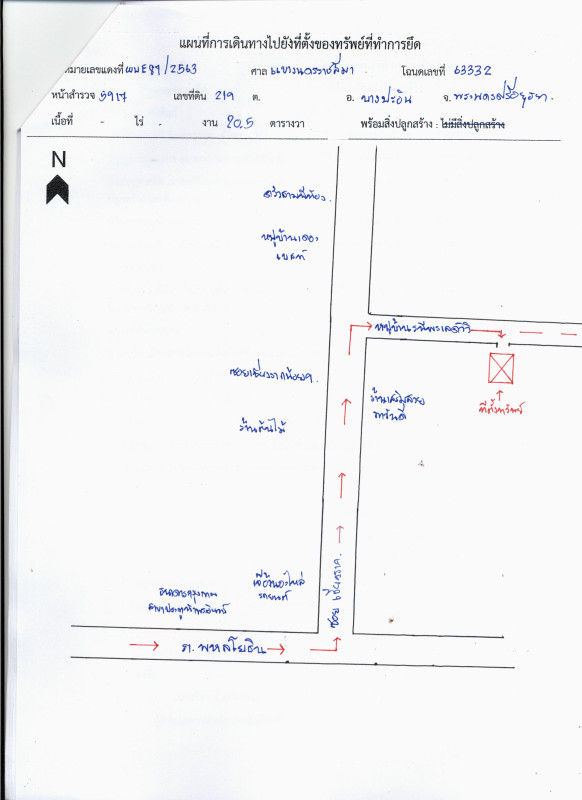 แผนที่การเดินทางไปยังที่ตั้งของทรัพย์ที่ทำการยึด
หมายเลขแดงที่ ผบE89/2563 ศาล แขวงนครราชสีมา โฉนดเลขที่ 63332
หน้าสำรวจ 5917 เลขที่ดิน 219 ต. อ. บางปะอิน จ. พระนครศรีอยุธยา
เนื้อที่ - ไร่ - งาน 20.5 ตารางวา พร้อมสิ่งปลูกสร้าง : ไม่มีสิ่งปลูกสร้าง
N
ครัวสามพี่น้อง
หมู่บ้านเดอะ
เบสท์
หมู่บ้าน
ซอยเชียงรากน้อย
ร้านต้นไม้
ที่ตั้งทรัพย์
ธนาคารกรุงเทพ
สาขาประตูน้ำพระอินทร์
อะไหล่
รถยนต์
ซอย เชียงราก
ถ. พหลโยธิน